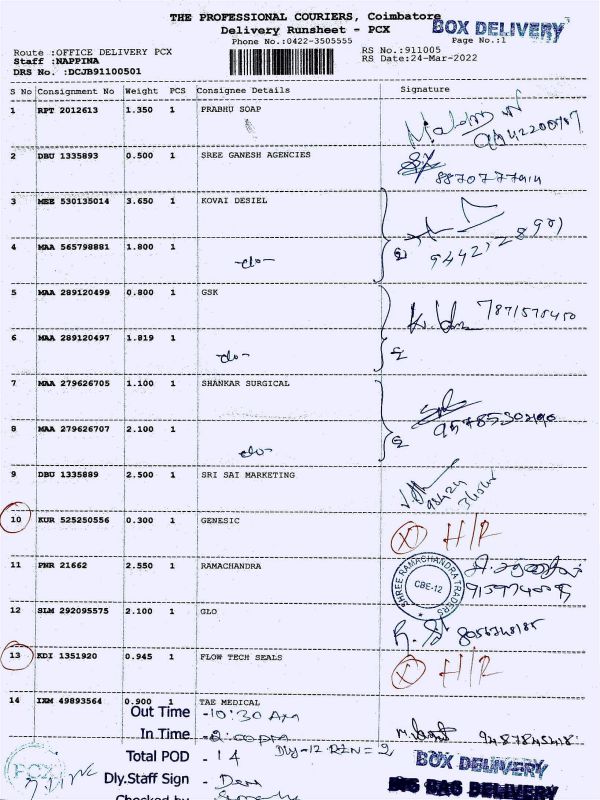 THE PROFESSIONAL COURIERS, Coimbatore
BOX DELIVERY
Delivery Runsheet - PCX
Phone No.:0422-3505555
Page No.:1
Route :OFFICE DELIVERY PCX
RS No.:911005
Staff :NAPPINA
RS Date:24-Mar-2022
DRS No. :DCJB91100501
S No Consignment No Weight PCS Consignee Details Signature
1 RPT 2012613 1.350 1 PRABHU SOAP
2 DBU 1335893 0.500 1 SREE GANESH AGENCIES
3 MEE 530135014 3.650 1 KOVAI DESIEL
4 MAA 565798881 1.800 1 -do-
5 MAA 289120499 0.800 1 GSK 7871575450
6 MAA 289120497 1.819 1 -do-
7 MAA 279626705 1.100 1 SHANKAR SURGICAL
8 MAA 279626707 2.100 1 -do-
9 DBU 1335889 2.500 1 SRI SAI MARKETING
10 KUR 525250556 0.300 1 GENESIC X H/R
11 PNR 21662 2.550 1 RAMACHANDRA
SHREE RAMACHANDRA TRADERS
CBE-12
12 SLM 292095575 2.100 1 GLO
13 KDI 1351920 0.945 1 FLOW TECH SEALS X H/R
14 IXM 49893564 0.900 1 TAE MEDICAL
Out Time - 10:30 AM
In Time - 2:00 PM
Total POD - 14 Dly-12 RTN = 2
BOX DELIVERY
PCX
Dly.Staff Sign -
BIG BAG DELIVERY
Checked by